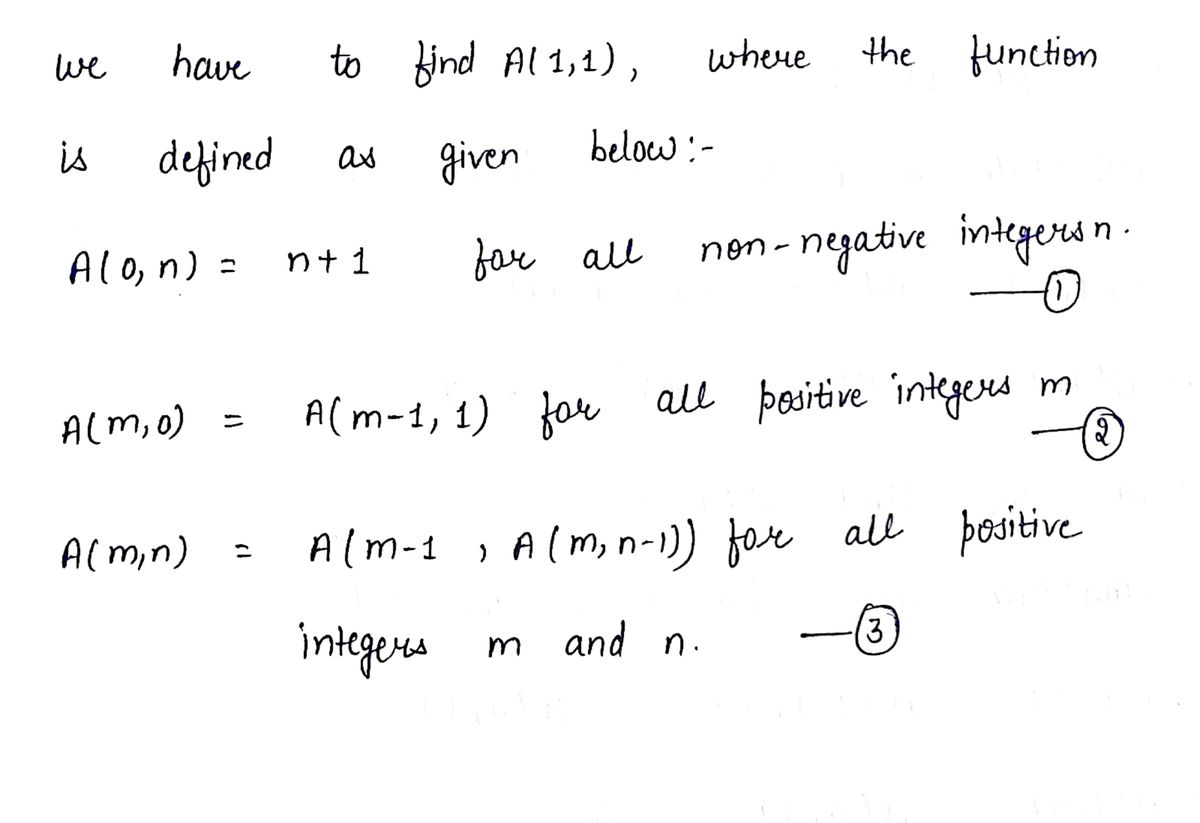 we have to find A(1,1), where the function
is defined as given below:-
A(0, n) = n+1 for all non-negative integers n.
—①
A(m,0) = A(m-1, 1) for all positive integers m
—②
A(m,n) = A(m-1 , A(m, n-1)) for all positive
integers m and n. —③